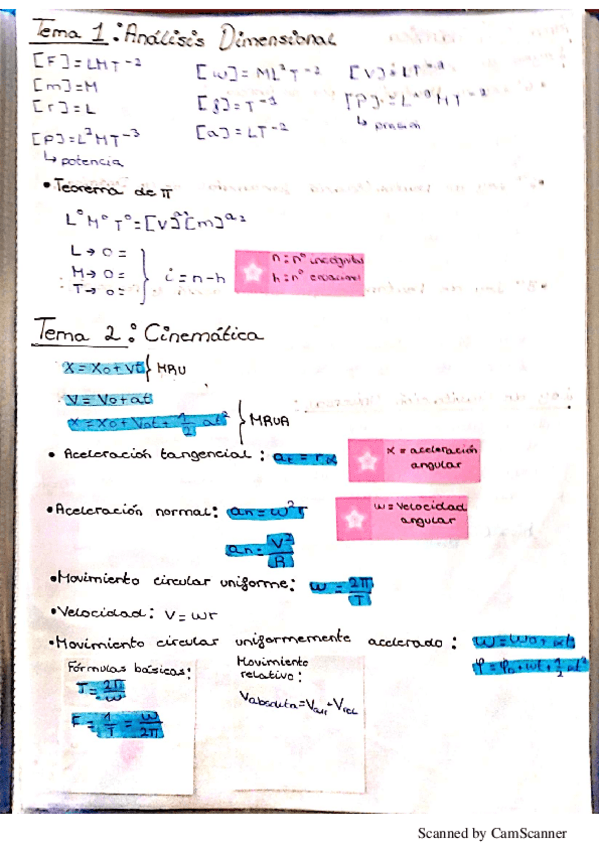 Tema 1: Análisis Dimensional
[F] = LMT⁻²
[m] = M
[r] = L
[P] = L²MT⁻³
↳ potencia
[w] = ML²T⁻²
[f] = T⁻¹
[a] = LT⁻²
↳ presión
• Teorema de π
L⁰M⁰T⁰ = [V] [m]
L → 0 =
M → 0 =
T → 0 =
i = n - h
n: nº incógnitas
h: nº ecuaciones
Tema 2: Cinemática
X = X₀ + Vt } MRU
V = V₀ + at
X = X₀ + V₀t + 1/2 at² } MRUA
• Aceleración tangencial: aₜ = rα
α = aceleración angular
• Aceleración normal: an = ω²r
ω = velocidad angular
an = V²/R
• Movimiento circular uniforme: ω = 2π/T
• Velocidad: V = ωr
• Movimiento circular uniformemente acelerado: ω = ω₀ + αt
φ = φ₀ + ωt + 1/2 αt²
Fórmulas básicas:
T = 2π/ω
F = 1/T = ω/2π
Movimiento relativo:
Vabsoluta = Varr + Vrel
Scanned by CamScanner